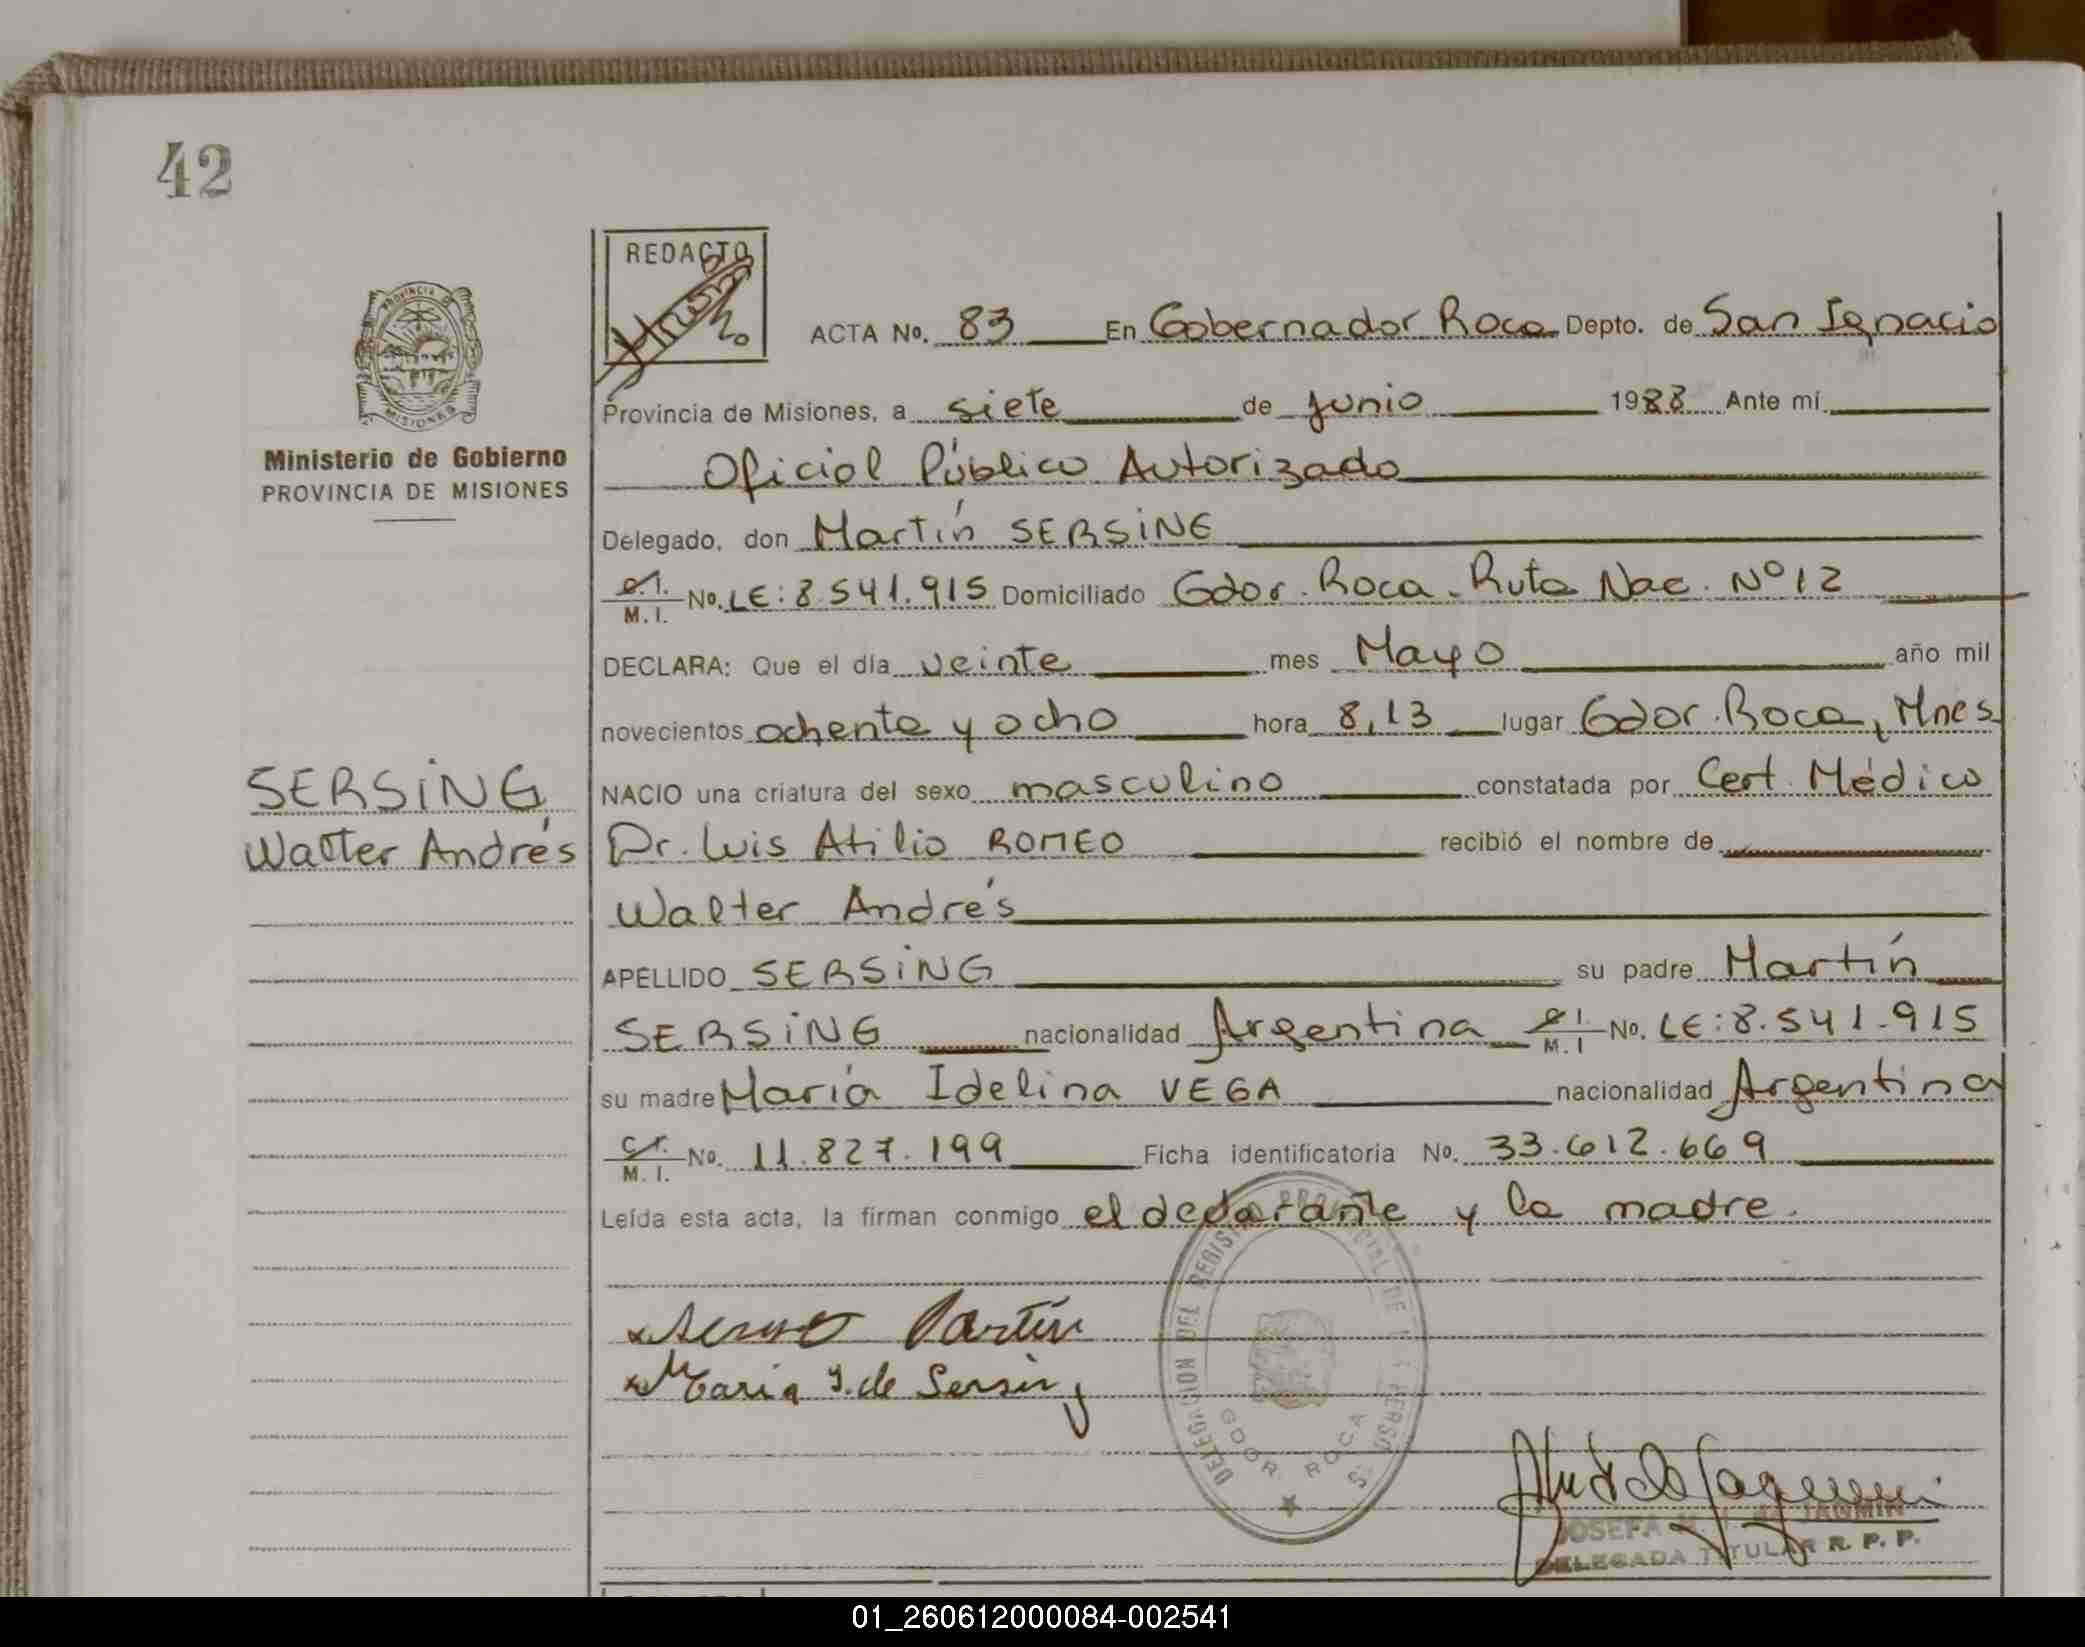 42
REDACTO
ACTA No. 83 En Gobernador Roca Depto. de San Ignacio
PROVINCIA DE
MISIONES
Provincia de Misiones, a siete de junio 1988 Ante mí
Ministerio de Gobierno
PROVINCIA DE MISIONES
Oficial Público Autorizado
Delegado, don Martín SERSING
C.I.
M.I. No. LE: 8.541.915 Domiciliado Gdor. Roca. Ruta Nac. Nº 12
DECLARA: Que el día veinte mes Mayo año mil
novecientos ochenta y ocho hora 8,13 lugar Gdor. Roca, Mnes
SERSING
NACIO una criatura del sexo masculino constatada por Cert. Médico
Walter Andrés
Dr. Luis Atilio ROMEO recibió el nombre de
Walter Andrés
APELLIDO SERSING su padre Martín
SERSING nacionalidad Argentina C.I.
M.I No. LE: 8.541.915
su madre María Idelina VEGA nacionalidad Argentina
C.I.
M.I. No. 11.827.199 Ficha identificatoria No. 33.612.669
Leída esta acta, la firman conmigo el declarante y la madre.
DELEGACION DEL REGISTRO PROVINCIAL DE LAS PERSONAS
GDOR. ROCA
Martín
Maria I. de Sersing
JOSEFA
DELEGADA TITULAR R. P. P.
01_260612000084-002541